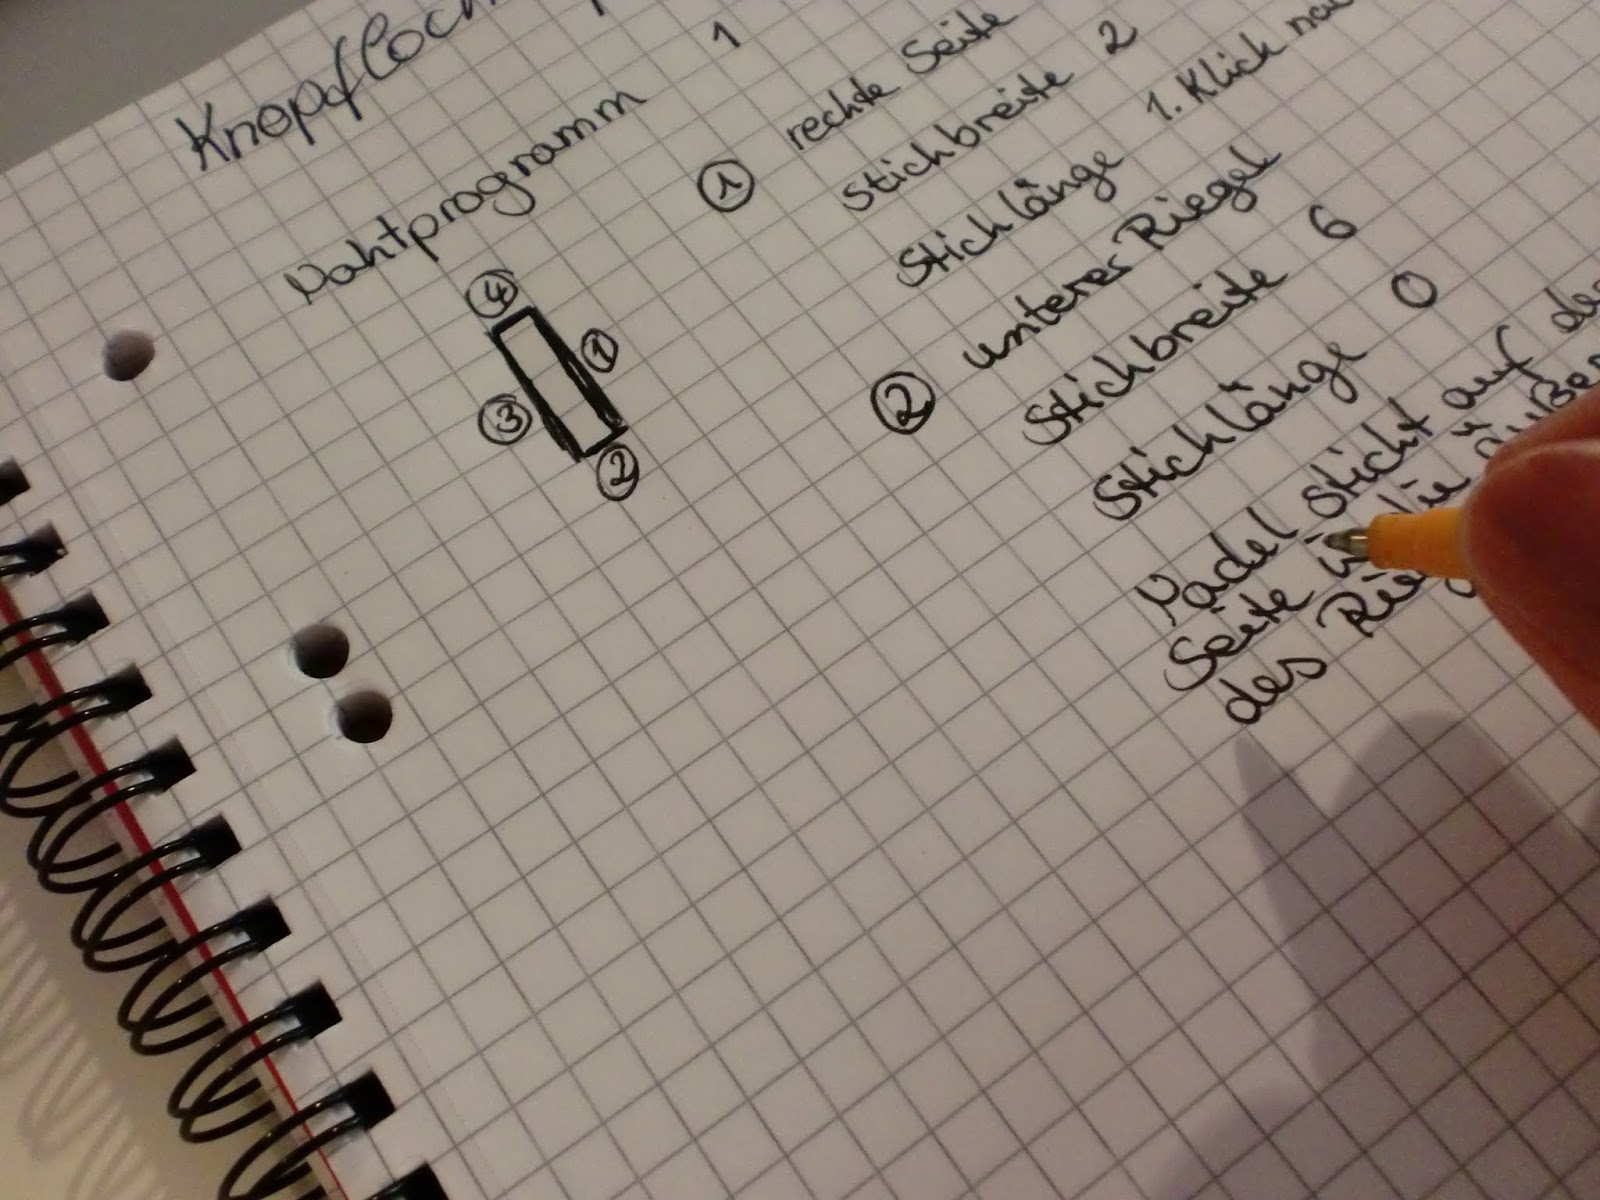 Knopfloch
Nahtprogramm 1
④
①
③
②
① rechte Seite
Stichbreite 2
Stichlänge 1. Klick
② unterer Riegel
Stichbreite 6
Stichlänge 0
Nadel sticht auf
Seite
des